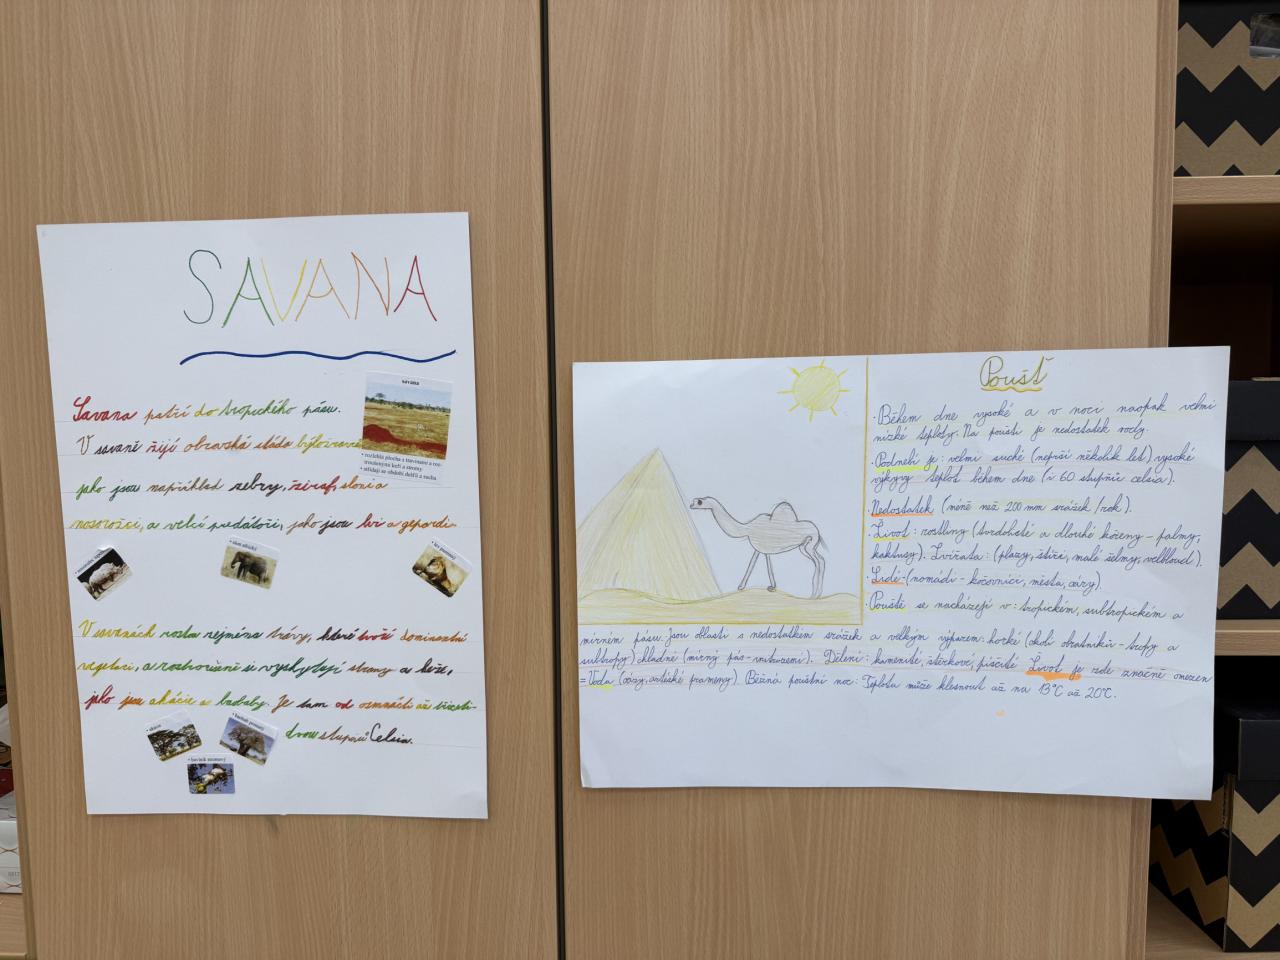 SAVANA
Savana patří do tropického pásu.
V savaně žijí obrovská stáda býložravců
jako jsou například zebry, žiraf, sloni a
nosorožci, a velcí predátoři, jako jsou lvi a gepardi.
V savanách roste zejména trávy, které tvoří dominantní
vegetaci, a roztroušeně si vyskytují stromy a keře,
jako jsou akácie a baobaby. Je tam od osmnácti až třiceti-
dvou stupňů Celsia.
savana
• rozlehlá plocha s travinami a roz-
troušenými keři a stromy
• střídají se období dešťů a sucha
• slon africký
• baobab prstnatý
Poušť
• Během dne vysoké a v noci naopak velmi
nízké teploty. Na poušti je nedostatek vody.
• Podnebí je: velmi suché (neprší několik let) vysoké
výkyvy teplot během dne (i 60 stupňů celsia).
• Nedostatek (méně než 200 mm srážek /rok).
• Život: rostliny (tvrdolisté a dlouhé kořeny - palmy,
kaktusy). Zvířata: (plazy, štíři, malé šelmy, velbloud).
• Lidé - (nomádi - kočovníci, města, oázy).
• Pouště se nacházejí v: tropickém, subtropickém a
mírném pásu. Jsou oblasti s nedostatkem srážek a velkým výparem: horké (okolí obratníků - tropy a
subtropy) chladné (mírný pás - vnitrozemí). Dělení: kamenité, štěrkové, písčité Život je zde značně omezen
= Voda (oázy, artéské prameny). Běžná pouštní noc: Teplota může klesnout až na 13°C až 20°C.